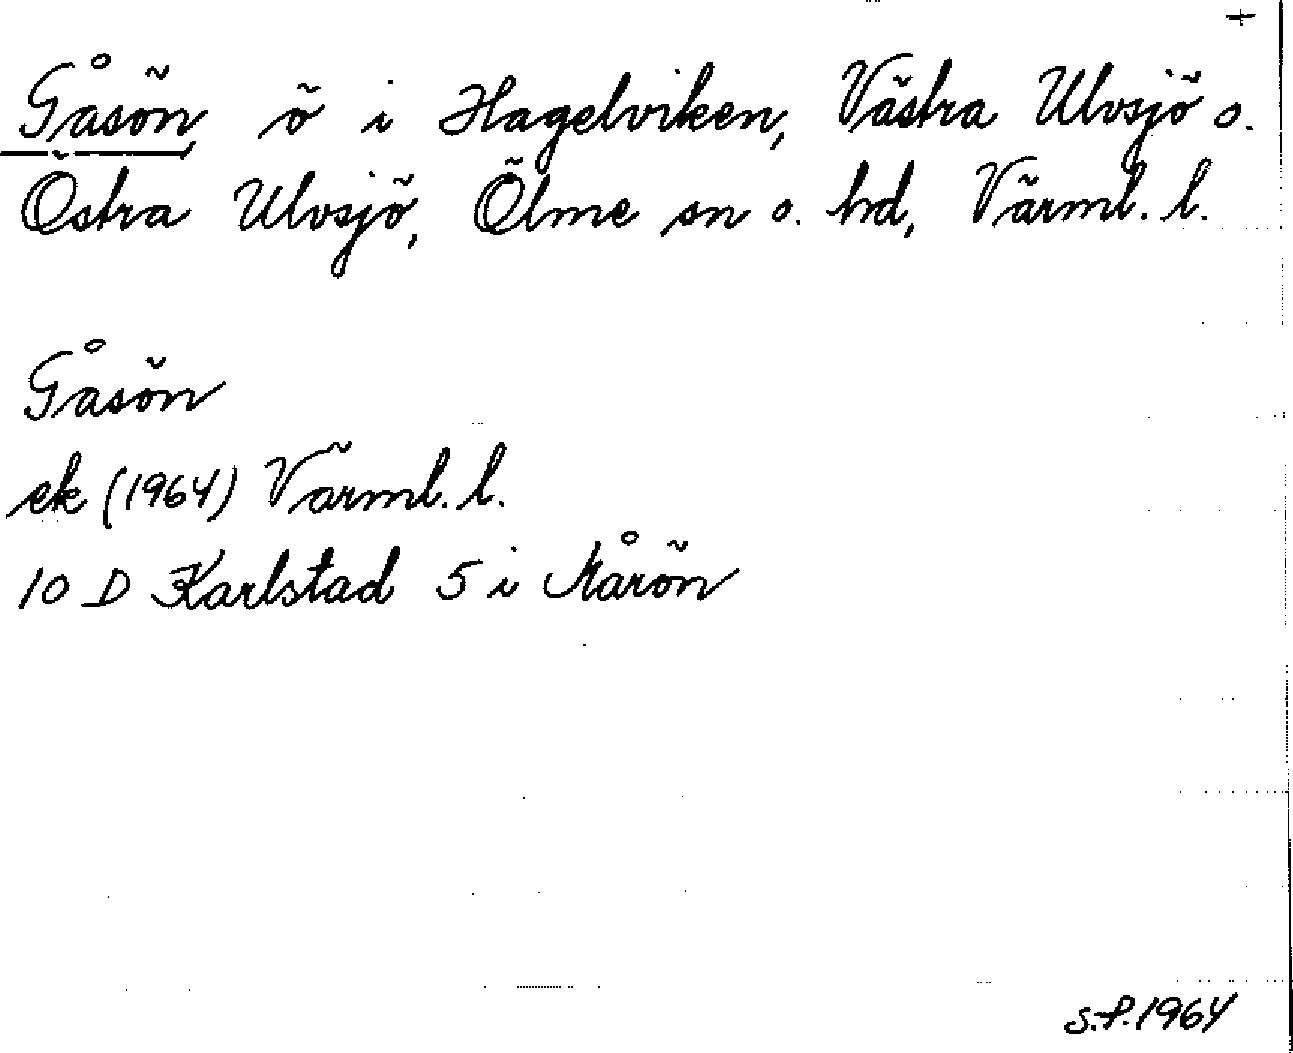 +
Gåsön ö i Hagelviken, Västra Ulvsjö o.
Östra Ulvsjö, Ölme sn o. hd, Värml. l.
Gåsön
ek (1964) Värml. l.
10 D Karlstad 5 iÅrön
S.P. 1964